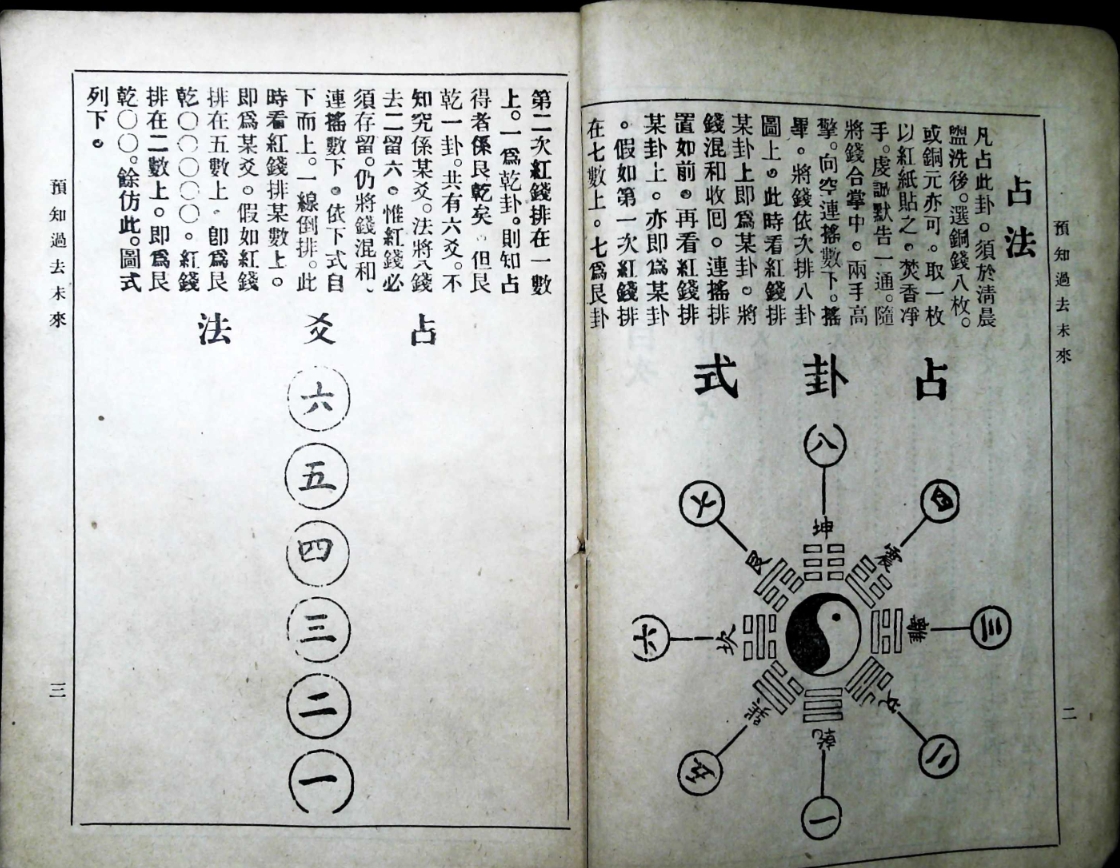 預知過去未來
二
占法
凡占此卦。須於淸晨
盥洗後。選銅錢八枚。
或銅元亦可。取一枚
以紅紙貼之。焚香凈
手。虔誠默告一通。隨
將錢合掌中。兩手高
擎。向空連搖數下。搖
畢。將錢依次排八卦
圖上。此時看紅錢排
某卦上卽爲某卦。將
錢混和收囘。連搖排
置如前。再看紅錢排
某卦上。亦卽爲某卦
。假如第一次紅錢排
在七數上。七爲艮卦
占卦式
八
坤
四
震
三
離
二
兌
一
乾
五
巽
六
坎
七
艮
第二次紅錢排在一數
上。一爲乾卦。則知占
得者係艮乾矣。但艮
乾一卦。共有六爻。不
知究係某爻。法將八錢
去二留六。惟紅錢必
須存留。仍將錢混和、
連搖數下。依下式自
下而上。一線倒排。此
時看紅錢排某數上。
卽爲某爻。假如紅錢
排在五數上。卽爲艮
乾〇〇〇〇〇。紅錢
排在二數上。卽爲艮
乾〇〇。餘仿此。圖式
列下。
占爻法
六
五
四
三
二
一
預知過去未來
三